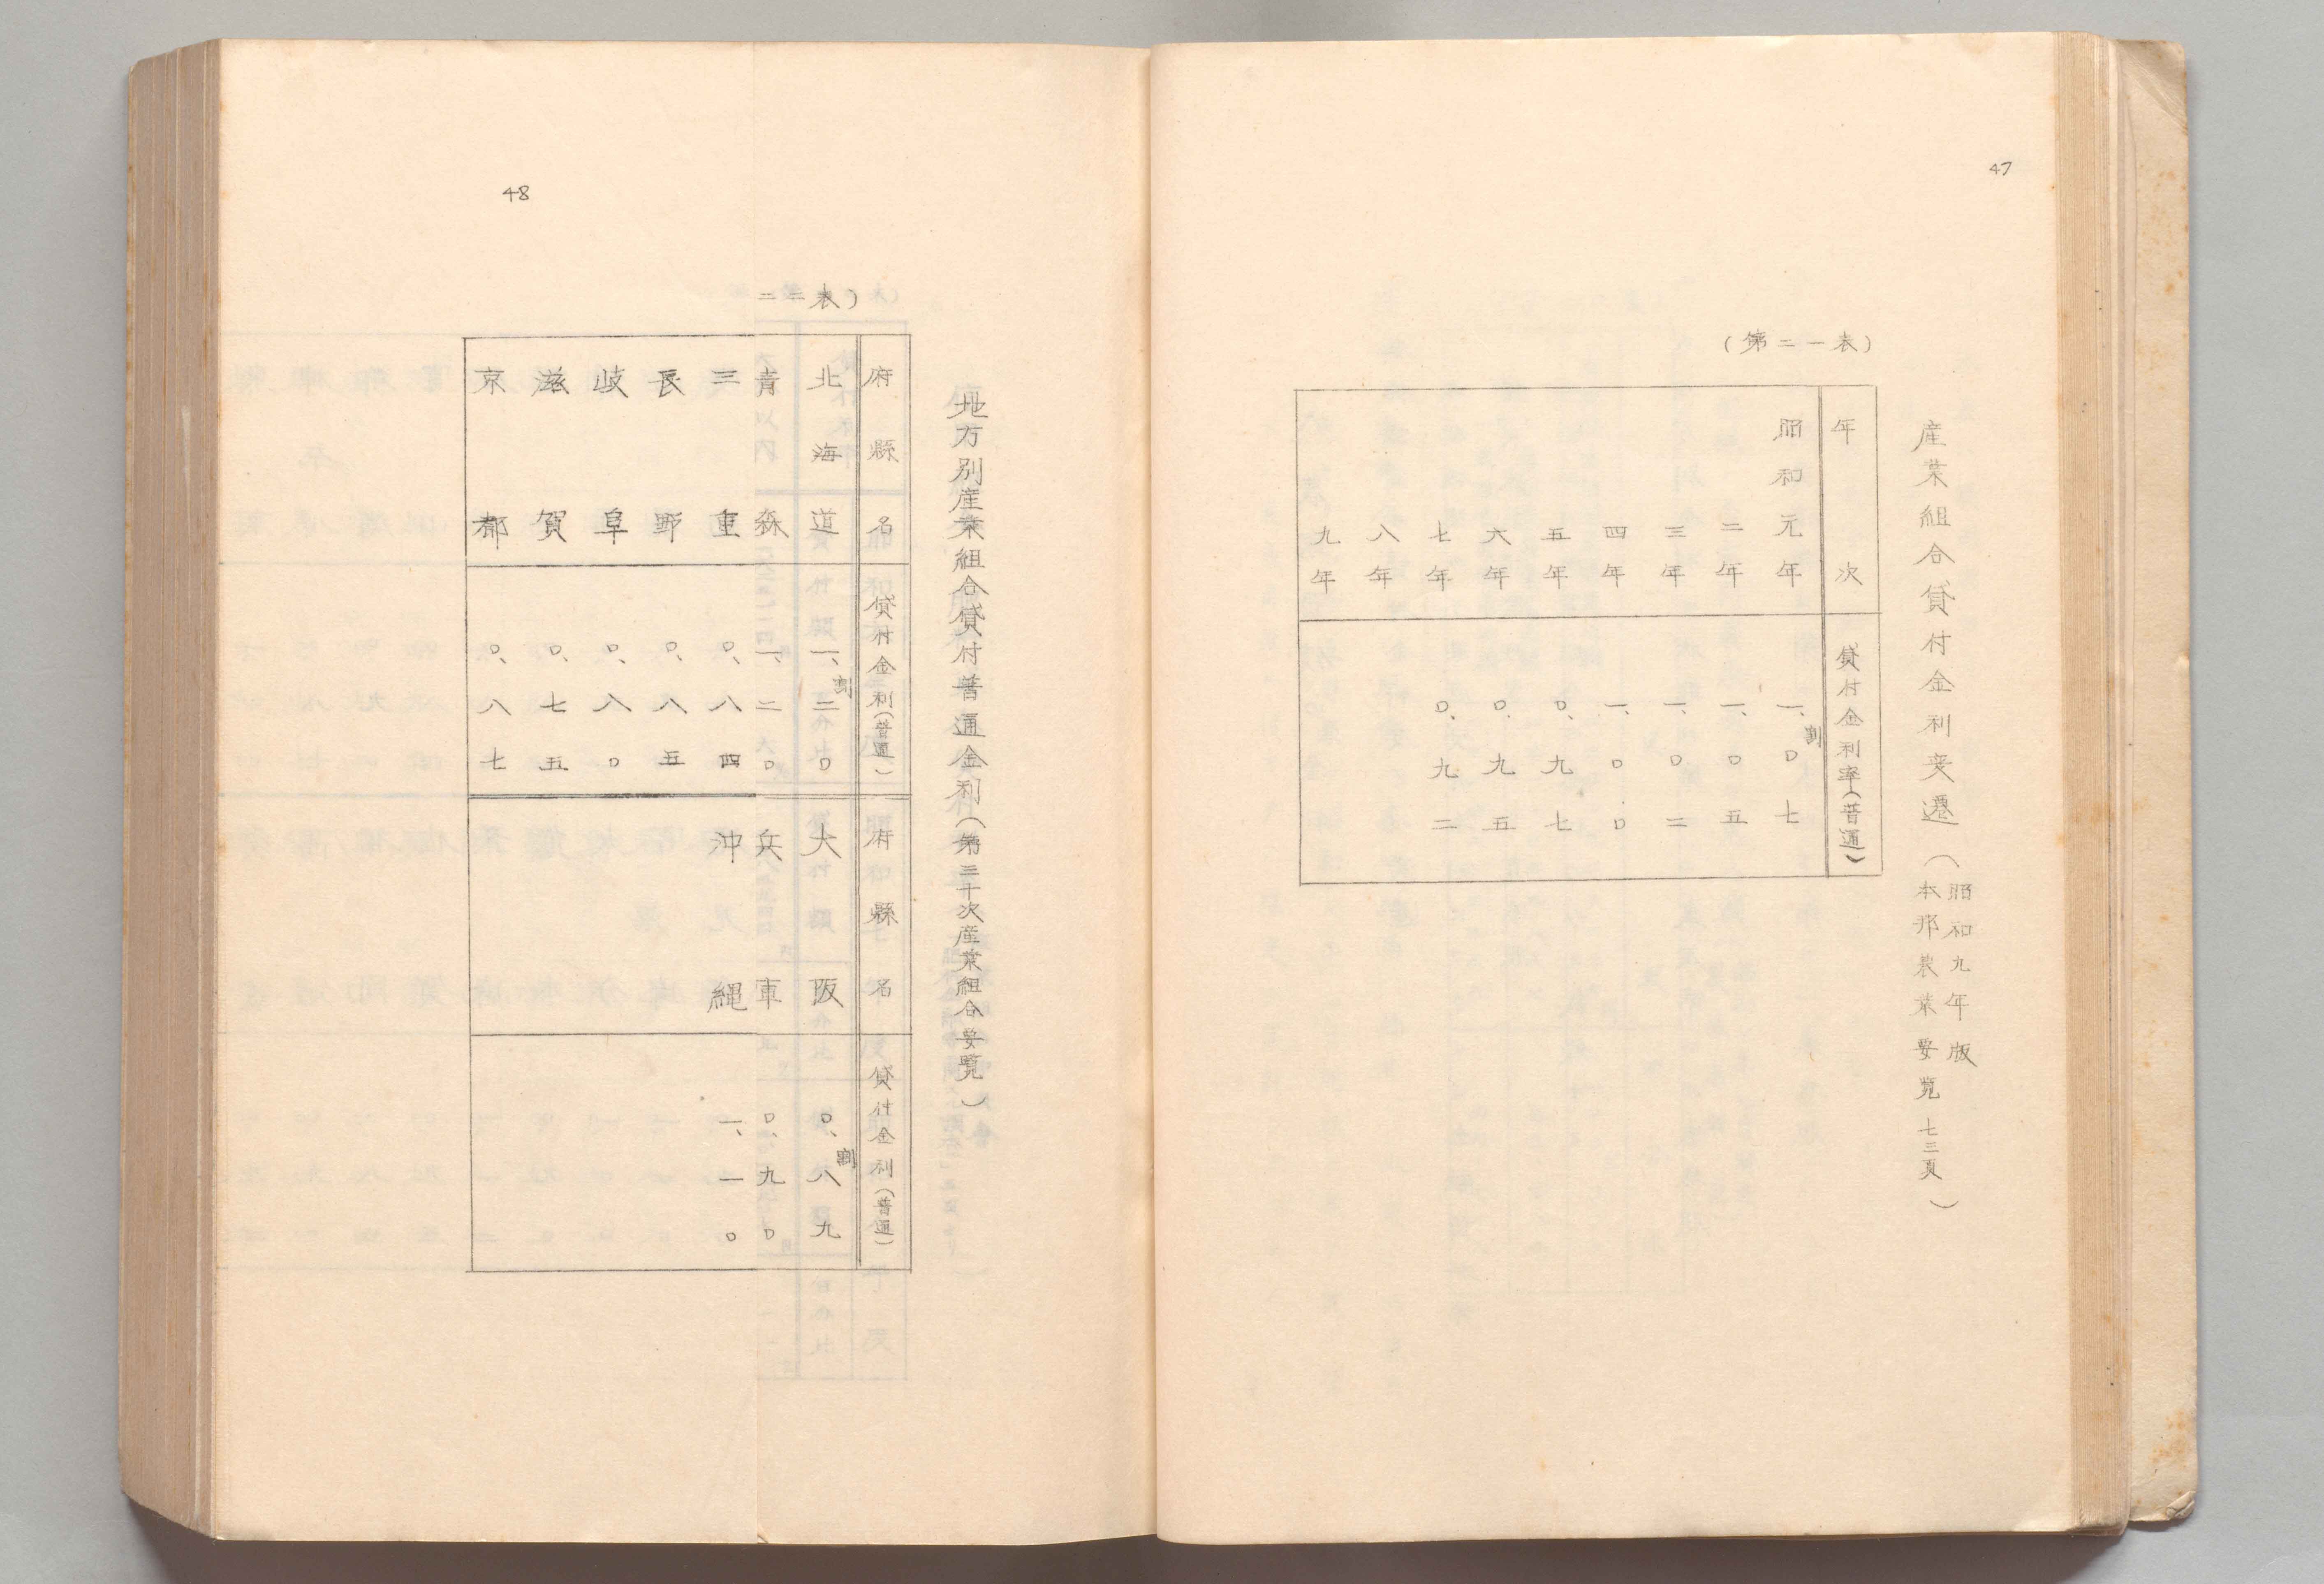 47
産業組合貸付金利変遷（昭和九年版本邦農業要覧七三頁）
（第二一表）
年次　貸付金利率（普通）
昭和元年　一、〇七割
二年　一、〇五
三年　一、〇二
四年　一、〇〇
五年　〇、九七
六年　〇、九五
七年　〇、九二
八年
九年
48
地方別産業組合貸付普通金利（第三十次産業組合要覧）
二二表）
府縣名　貸付金利（普通）　府縣名　貸付金利（普通）
北海道　一、二〇割　大阪　〇、八九割
青森　一、二〇　兵庫　〇、九〇
三重　〇、八四　沖縄　一、一〇
長野　〇、八五
岐阜　〇、八〇
滋賀　〇、七五
京都　〇、八七